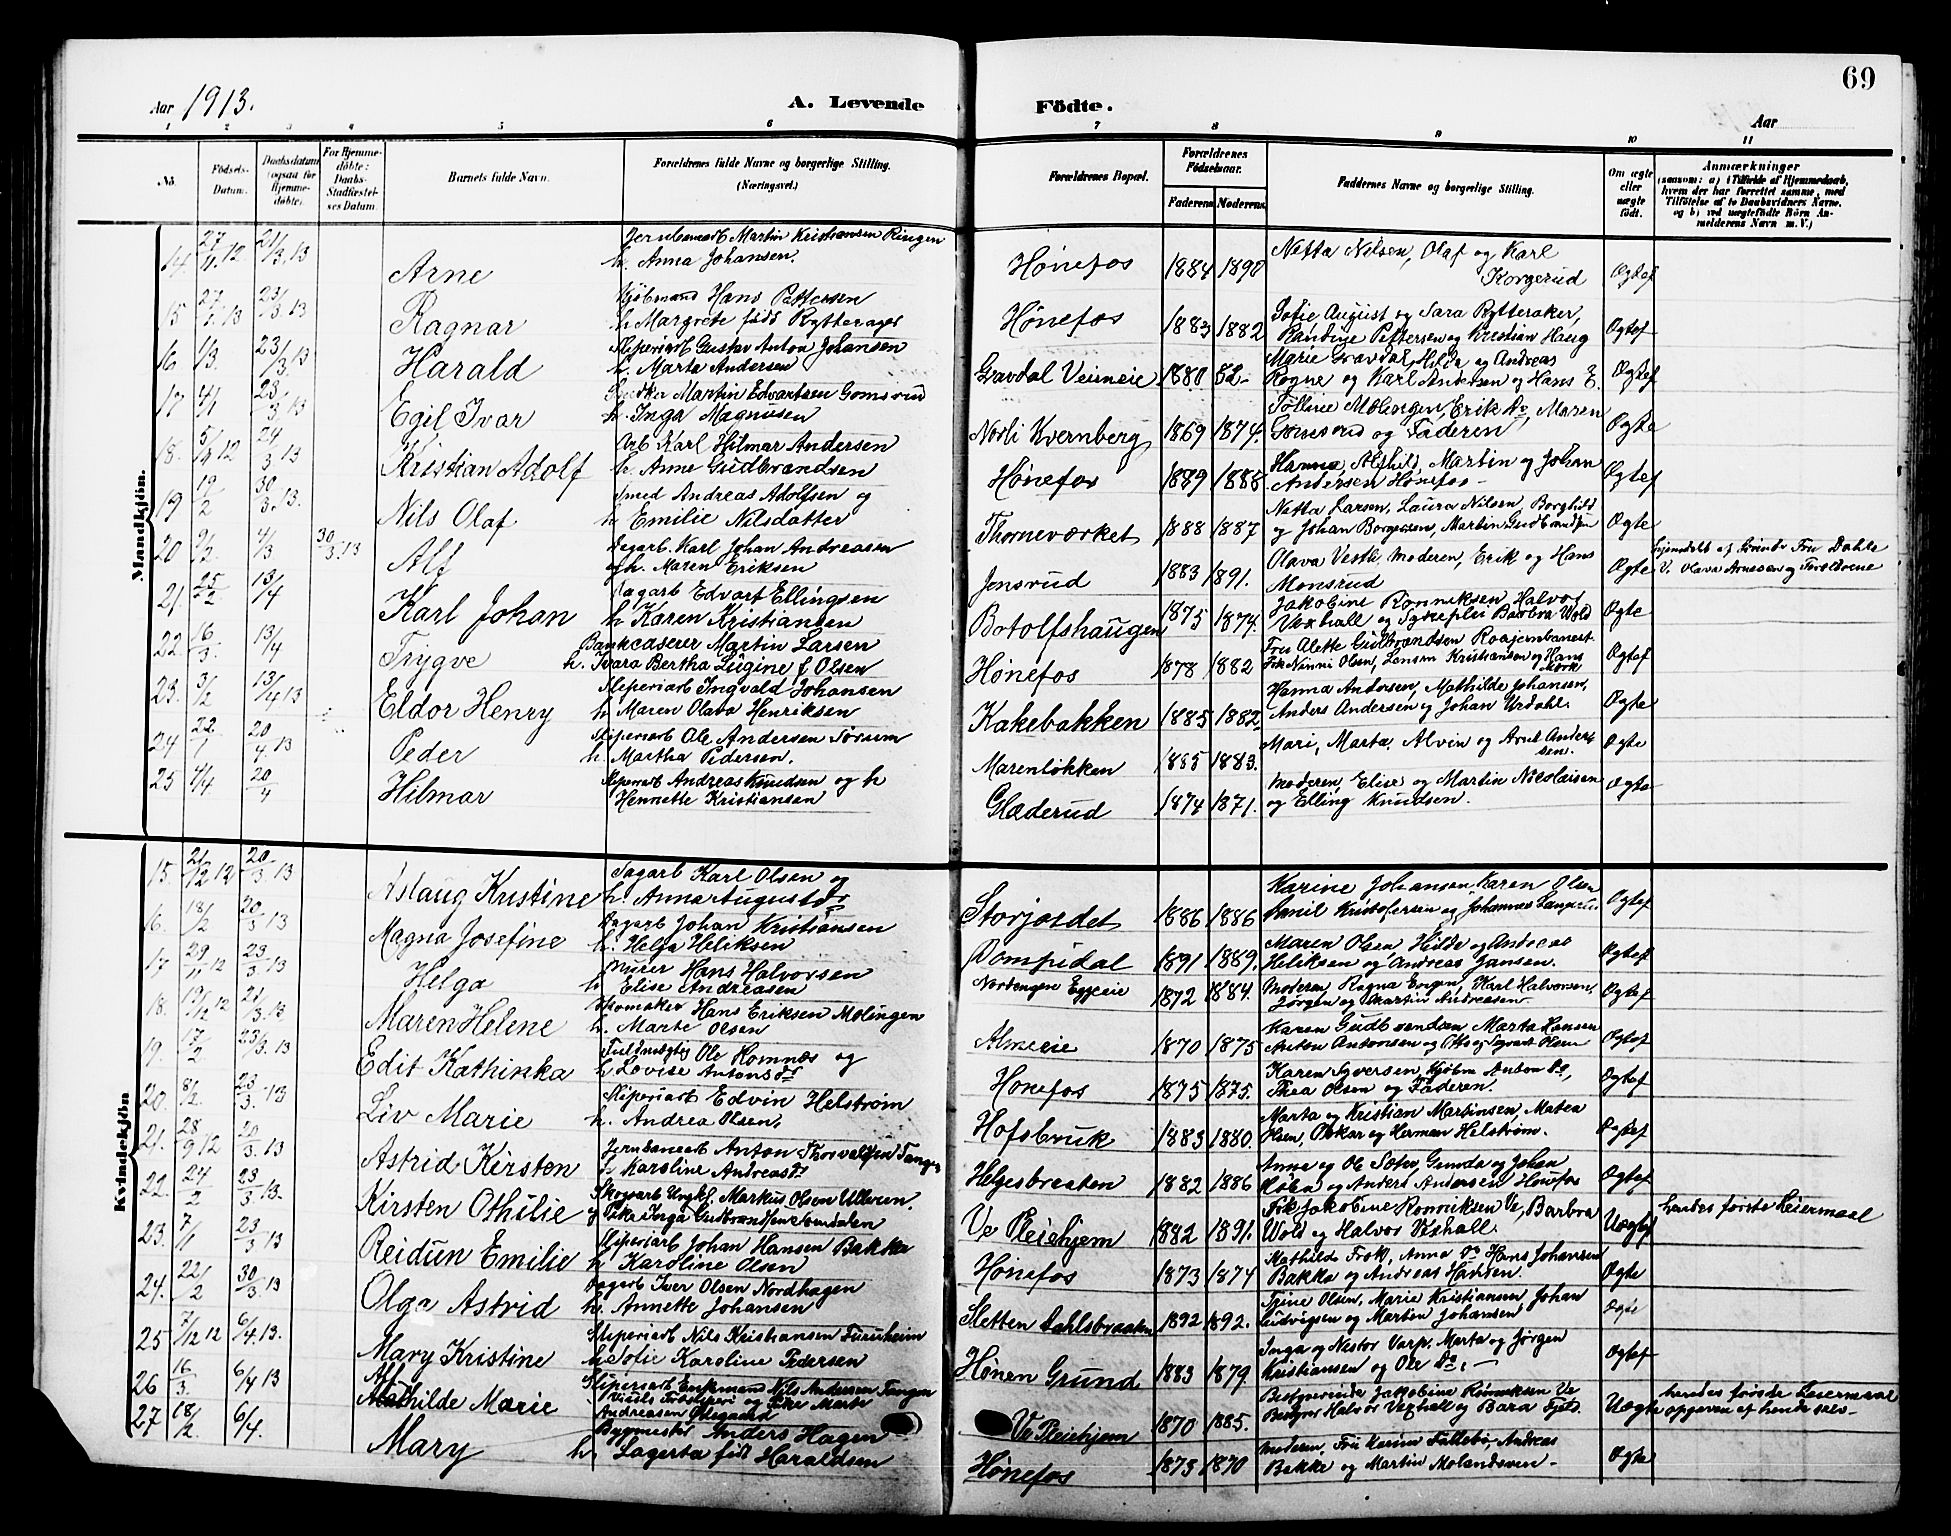 69
Aar 1913.
A. Levende Födte.
Aar
1 2 3 4 5 6 7 8 9 10 11
No.
Födsels-Datum.
Daabsdatum (ogsaa for Hjemme-døbte).
For Hjemme-døbte: Daabs-Stadfæstelses Datum.
Barnets fulde Navn.
Forældrenes fulde Navne og borgerlige Stilling. (Næringsvei.)
Forældrenes Bopæl.
Forældrenes Fødselsaar.
Faderens. Moderens.
Faddernes Navne og borgerlige Stilling.
Om ægte eller uægte født.
Anmærkninger
(saasom: a) i Tilfælde af Hjemmedaab, hvem der har forrettet samme, med Tilföielse af to Daabsvidners Navne, og b) ved uægtefödte Börn Anmelderens Navn m. V.)
Mandkjön.
14. 27/11 12 21/3 13 Arne Jernbanearb Martin Kristiansen Ringen h. Anna Johansen. Hønefos 1884 1890 Netta Nilsen, Olaf og Karl Korgerud Ægtef
15 27/1 13 23/3 13 Ragnar Kjøbmand Hans Pettersen h Margrete født Rytterager Hønefos 1883 1882 Sofie August og Sara Rytteraker, Randine Pettersen og Kristian Haug Ægtef
16 1/3. 23/3 13 Harald Sliperiarb Gustav Anton Johansen h. Marta Andersen Gravdal Veimeie 1880 82- Marie Gravdal, Hilda og Andreas Rogne og Karl Andersen og Hans E. Ægtef
17 4/1 23/3 13 Egil Ivar Martin Edvartsen Gomsrud h. Inga Magnusen Norli Kvernberg 1869 1874. Tolline Molingen, Erik Do, Maren og Faderen Ægte
18. 5/11 12 24/3 13 Kristian Adolf Arb Karl Hilmar Andersen h. Anne Gudbrandsen Hønefos 1889 1888 Hanna, Alfhild, Martin og Johan Andersen Hønefos - Ægtef
19 19/2 30/3. 13. Nils Olaf Smed Andreas Adolfsen og h Emilie Nilsdatter Thorneværket 1888 1887 Netta Larsen, Laura Nilsen, Borghild og Johan Borgersen, Martin Gudbrandsen Ægte
20 9/2 4/3 30/3 13 Alf Dagarb. Karl Johan Andreasen og h. Maren Eriksen Jensrud 1883 1891. Olava Vestli, moderen, Erik og Hans Monsrud Ægte Hjemdøbt af Fru Dahle V. Olava Arnesen og Forældrene
21 25/2 13/4 Karl Johan Dagarb Edvart Ellingsen h Karen Kristiansen Botolfshaugen 1875 1874. Jakobine Rønniksen Halvor Vexhall og Barbra Wold Ægte
22 16/3. 13/4 Trygve Bankcaserer Martin Larsen h. Ivara Bertha Lugine f Olsen Hønefos 1878 1882 Frk Nanni Olsen, Lensm Kristiansen og Hans Mork Ægtef
23. 3/2 13/4 13 Eldor Henry Sliperiarb Ingvald Johansen h Maren Olava Henriksen Kakebakken 1885 1882 Hanna Andersen, Mathilde Johansen, Anders Andersen og Johan Urdahl. Ægte
24 22/1 20/4. 13 Peder Sliperiarb Ole Andersen Sørum h. Martha Pedersen. Marenløkken 1885 1883. Mari, Marta, Alvin og Arnt Andersen. Ægte
25 4/4 20/4 Hilmar Sliperiarb Andreas Knudsen og h Hennette Kristiansen Glæderud 1874 1871. Moderen, Elise og Martin Nicolaisen og Elling Knudsen. Ægte
Kvindekjön
15. 21/12 12 20/3 13 Aslaug Kristine Dagarb Karl Olsen og h. Anna Augustdr Storjordet 1886 1886 Karine Johansen, Karen Olsen Kristofersen og Johannes Ægtef
16. 18/2 20/3 13 Magna Josefine Dagarb Johan Kristiansen h. Helga Heliksen Pompidal 1891 1889. Maren Olsen Hilda og Andreas Heliksen og Andreas Jansen. Ægtef
17 29/11 12 23/3 13 Helga Murer Hans Halvorsen h Elise Andreasen Nordengen Eggeeie 1872 1884. Moderen Ragna Engen, Karl Halvorsen, Jørgen og Martin Andreasen Ægtef
18. 19/12 12 21/3. 13 Maren Helene Skomaker Hans Eriksen Molingen h. Marte Olsen Almeeie 1870 1875 Karen Gudbrandsen Marta Hansen Anton Antonsen og Otto og Olsen Ægtef
19. 17/2 23/3. 13 Edit Kathinka Fuldmægtig Ole Homnæs og h Lovise Antonsdr Hønefos 1875 1875. Karen Syversen, Kjøbm Anton Do, Thea Olsen og Faderen. Ægtef
20. 8/2. 23/3. 13 Liv Marie Sliperiarb Edvin Helstrøm h. Andrea Olsen, Hofsbruk 1883 1880. Marta og Kristian Martinsen, Matea Olsen, Oskar og Herman Helstrøm. Ægtef
21. 28/9 12 20/3 13 Astrid Kirsten Jernbanearb Anton Thorvaldsen Tangen h Karoline Andreasdr Helgesbraaten 1882 1886 Anne og Ole Gunda og Johan og Anders Andersen Hønefos Ægtef
22. 24/2 23/3 13. Kirsten Othilie Skogsarb Ungkl. Markus Olsen Ullveien. og Pike Inga Gudbrandsen Ve Pleiehjem 1882 1891. Frk Jakobine Rønniksen Ve, Barbra Wold og Halvor Vexhall. Uægtef hendes første Leiermaal
23. 7/1 23/3 13 Reidun Emilie Sliperiarb Johan Hansen Bakka h Karoline Olsen Hønefos 1873 1874 Mathilde Frok, Anna Do Hans Johansen Bakka og Andreas Hansen. Ægte
24. 22/2 30/3. 13 Olga Astrid Dagarb Iver Olsen Nordhagen h. Annette Johansen Sletten Dahlsbraaten 1892 1892. Trine Olsen, Marie Kristiansen Johan Ludvigsen og Martin Johansen Ægte
25 7/12 12 6/4. 13. Mary Kristine Sliperiarb Nils Kristiansen Furuheim h Sofie Karoline Pedersen Hønen Grund 1883 1879. Inga og Nestor Varp. Marta og Jørgen Kristiansen og Ole Do. - Ægtef
26 16/3. 6/4 13 Mathilde Marie Sliperiarb Enkemand Nils Andersen Tangen og Pike Marte Andreasen Ødegaard Ve Pleiehjem 1870 1885. Bestyrerinde Jakobine Rønniksen Ve Bestyrer Halvor Vexhall og Uægte hendes første Leiermaal opgiven af hende selv -
27 18/2. 6/4. Mary Bygmester Anders Hagen h. Lagerta født Haraldsen Hønefos 1873 1870 Moderen, Fru Karine Follebø, Andreas Bakke og Martin Ægte